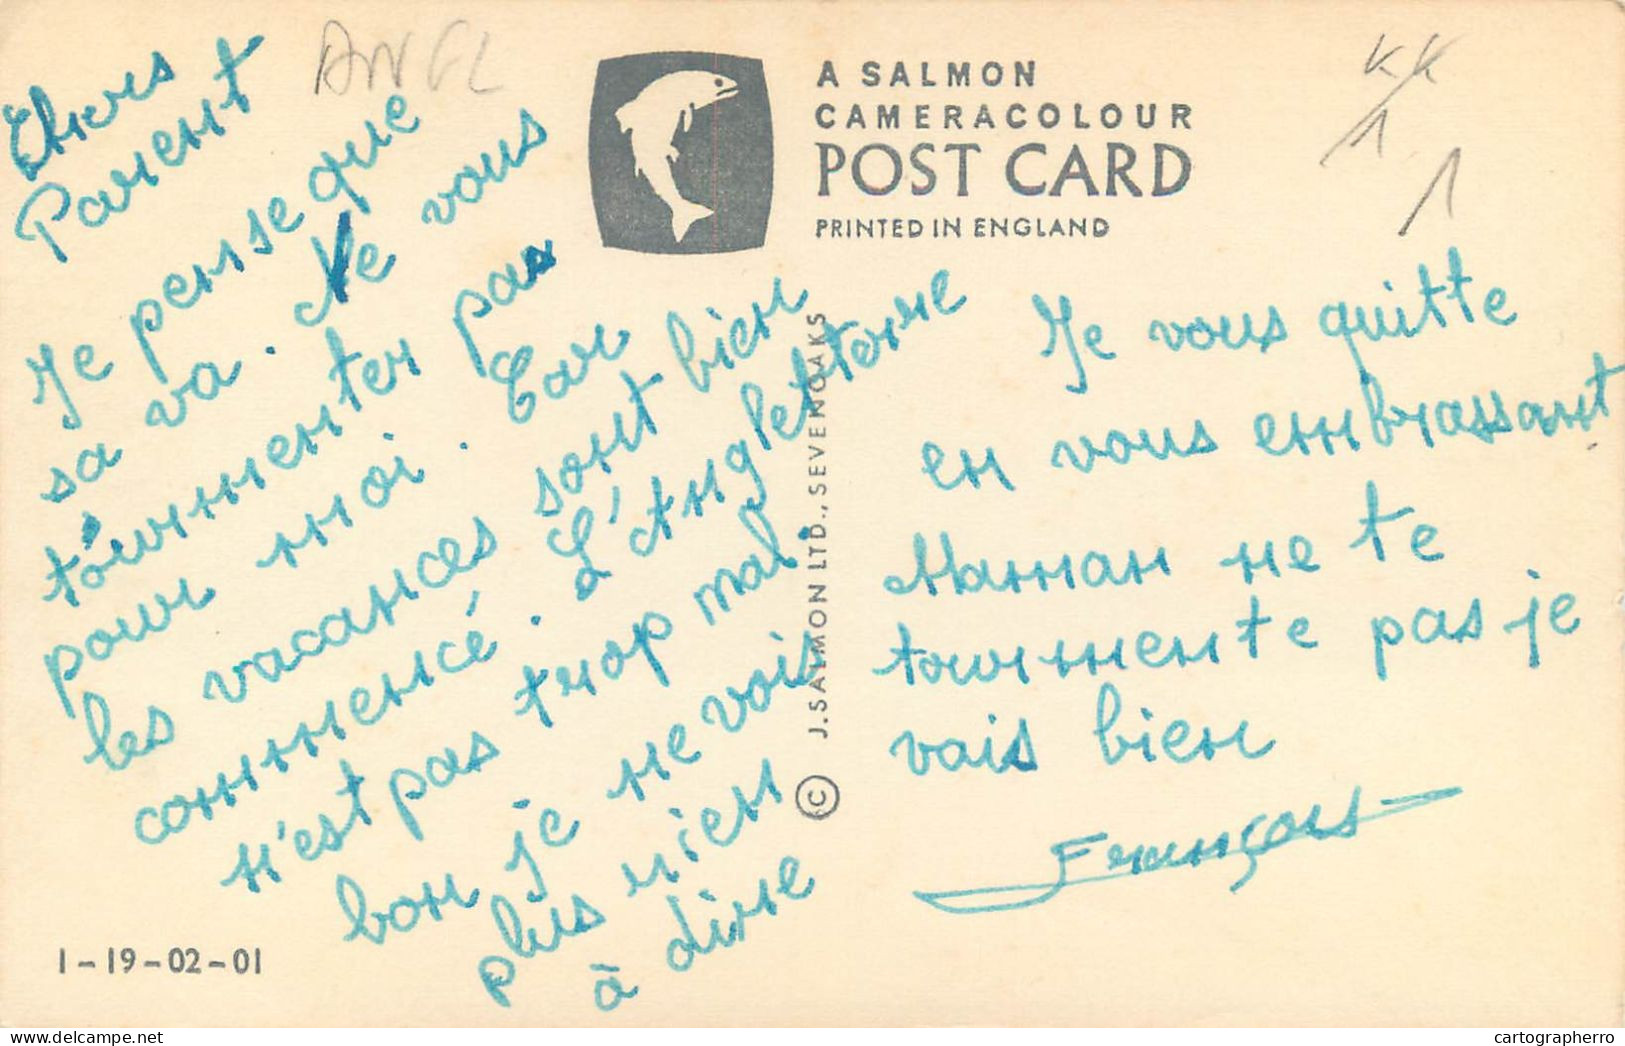 Chers
Parent
Je pense que
sa va. Ne vous
tourmenter pas
pour moi. Car
les vacances sont bien
commencé. L'Angleterre
n'est pas trop mal.
bon je ne vais
plus rien
à dire
Je vous quitte
en vous embrassant
Maman ne te
tourmente pas je
vais bien
François
ANGL
A SALMON
CAMERACOLOUR
POST CARD
PRINTED IN ENGLAND
© J. SALMON LTD., SEVENOAKS
KK
1
1
1-19-02-01
cartographerro